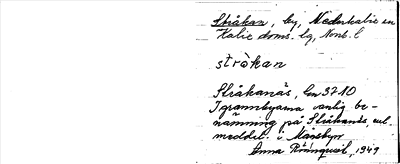 Stråkan, by, Nederkalix sn
Kalix doms. lg, Norrb. l
stràkan
Stråkanäs, Gn 3710
I grannbyarna vanlig be-
nämning på Stråkanäs, enl.
meddel. i Månsbyn
Anna Rönnqvist, 1949